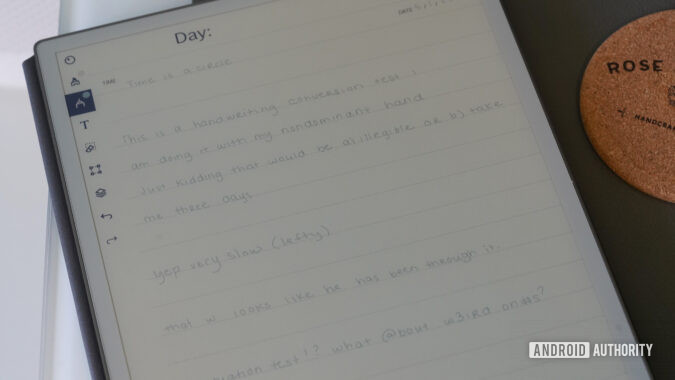 Day:
DATE
TIME
Time is a circle
This is a handwriting conversion test I
am doing it with my nondominant hand
Just kidding that would be a) illegible or b) take
me three days
Yep very slow (lefty)
that w looks like he has been through it.
test!? what @bout w3ird
T
ROSE
HANDCRA
ANDROID AUTHORITY